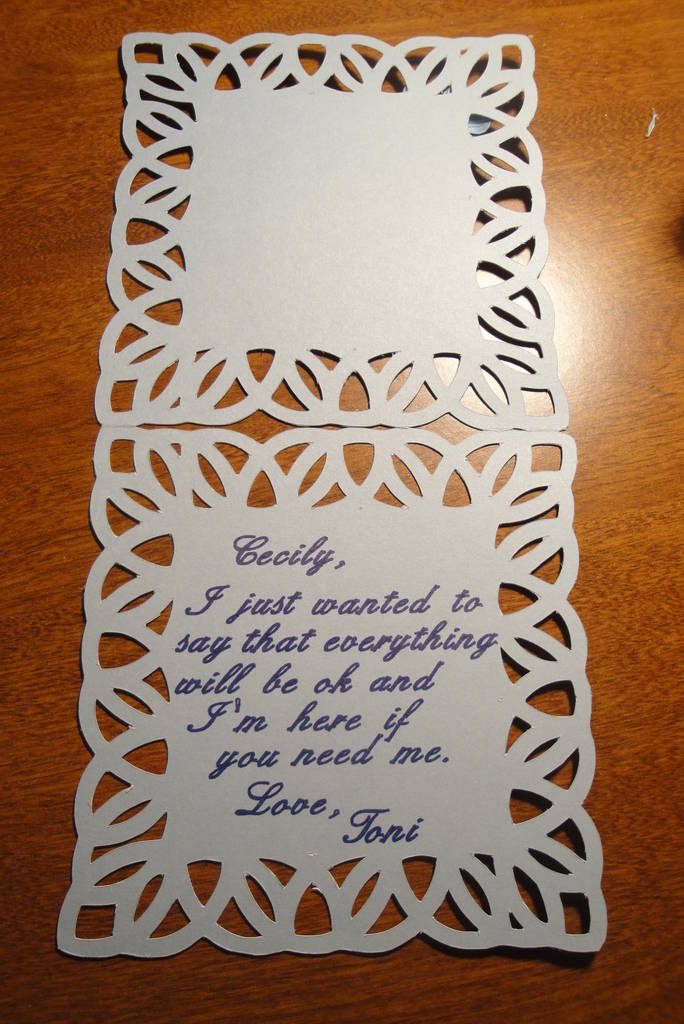 Cecily,
I just wanted to
say that everything
will be ok and
I'm here if
you need me.
Love,
Toni